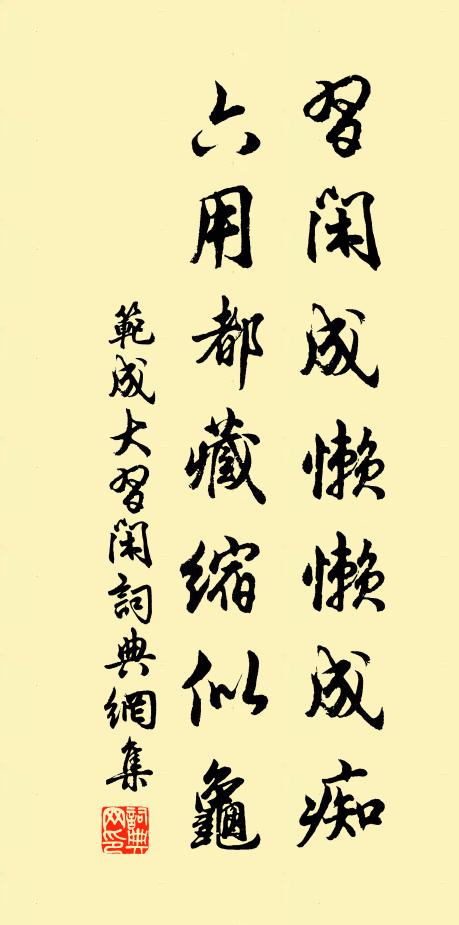 習閑成懶懶成痴
六用都藏縮似龜
範成大習閑詞典網集
詞典網印